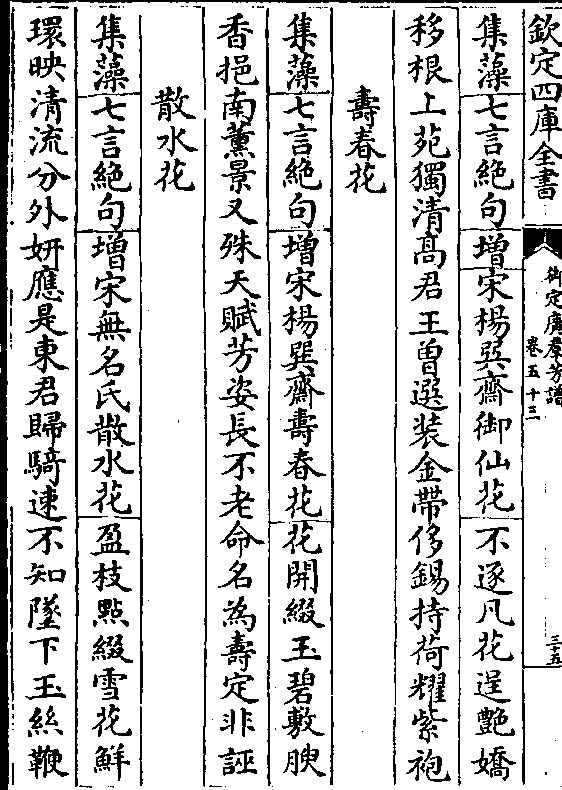 欽定四庫全書
御定廣羣芳譜
卷五十三
三十五
集藻七言絶句增宋楊巽齋御仙花不逐凡花逞艷嬌
移根上苑獨清高君王曽選装金帶侈錫持荷耀紫袍
壽春花
集藻七言絶句增宋楊巽齋壽春花花開綴玉碧敷腴
香挹南薫景又殊天賦芳姿長不老命名為壽定非誣
散水花
集藻七言絶句增宋無名氏散水花盈枝點綴雪花鮮
環映清流分外妍應是東君歸騎速不知墜下玉絲鞭